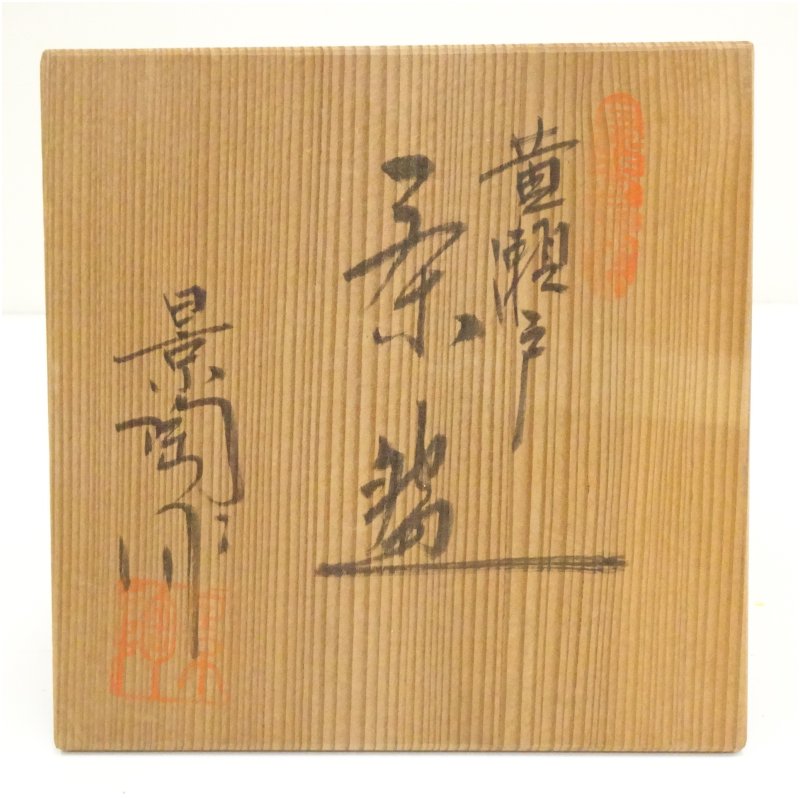 黄瀬戸
茶碗
景陶川